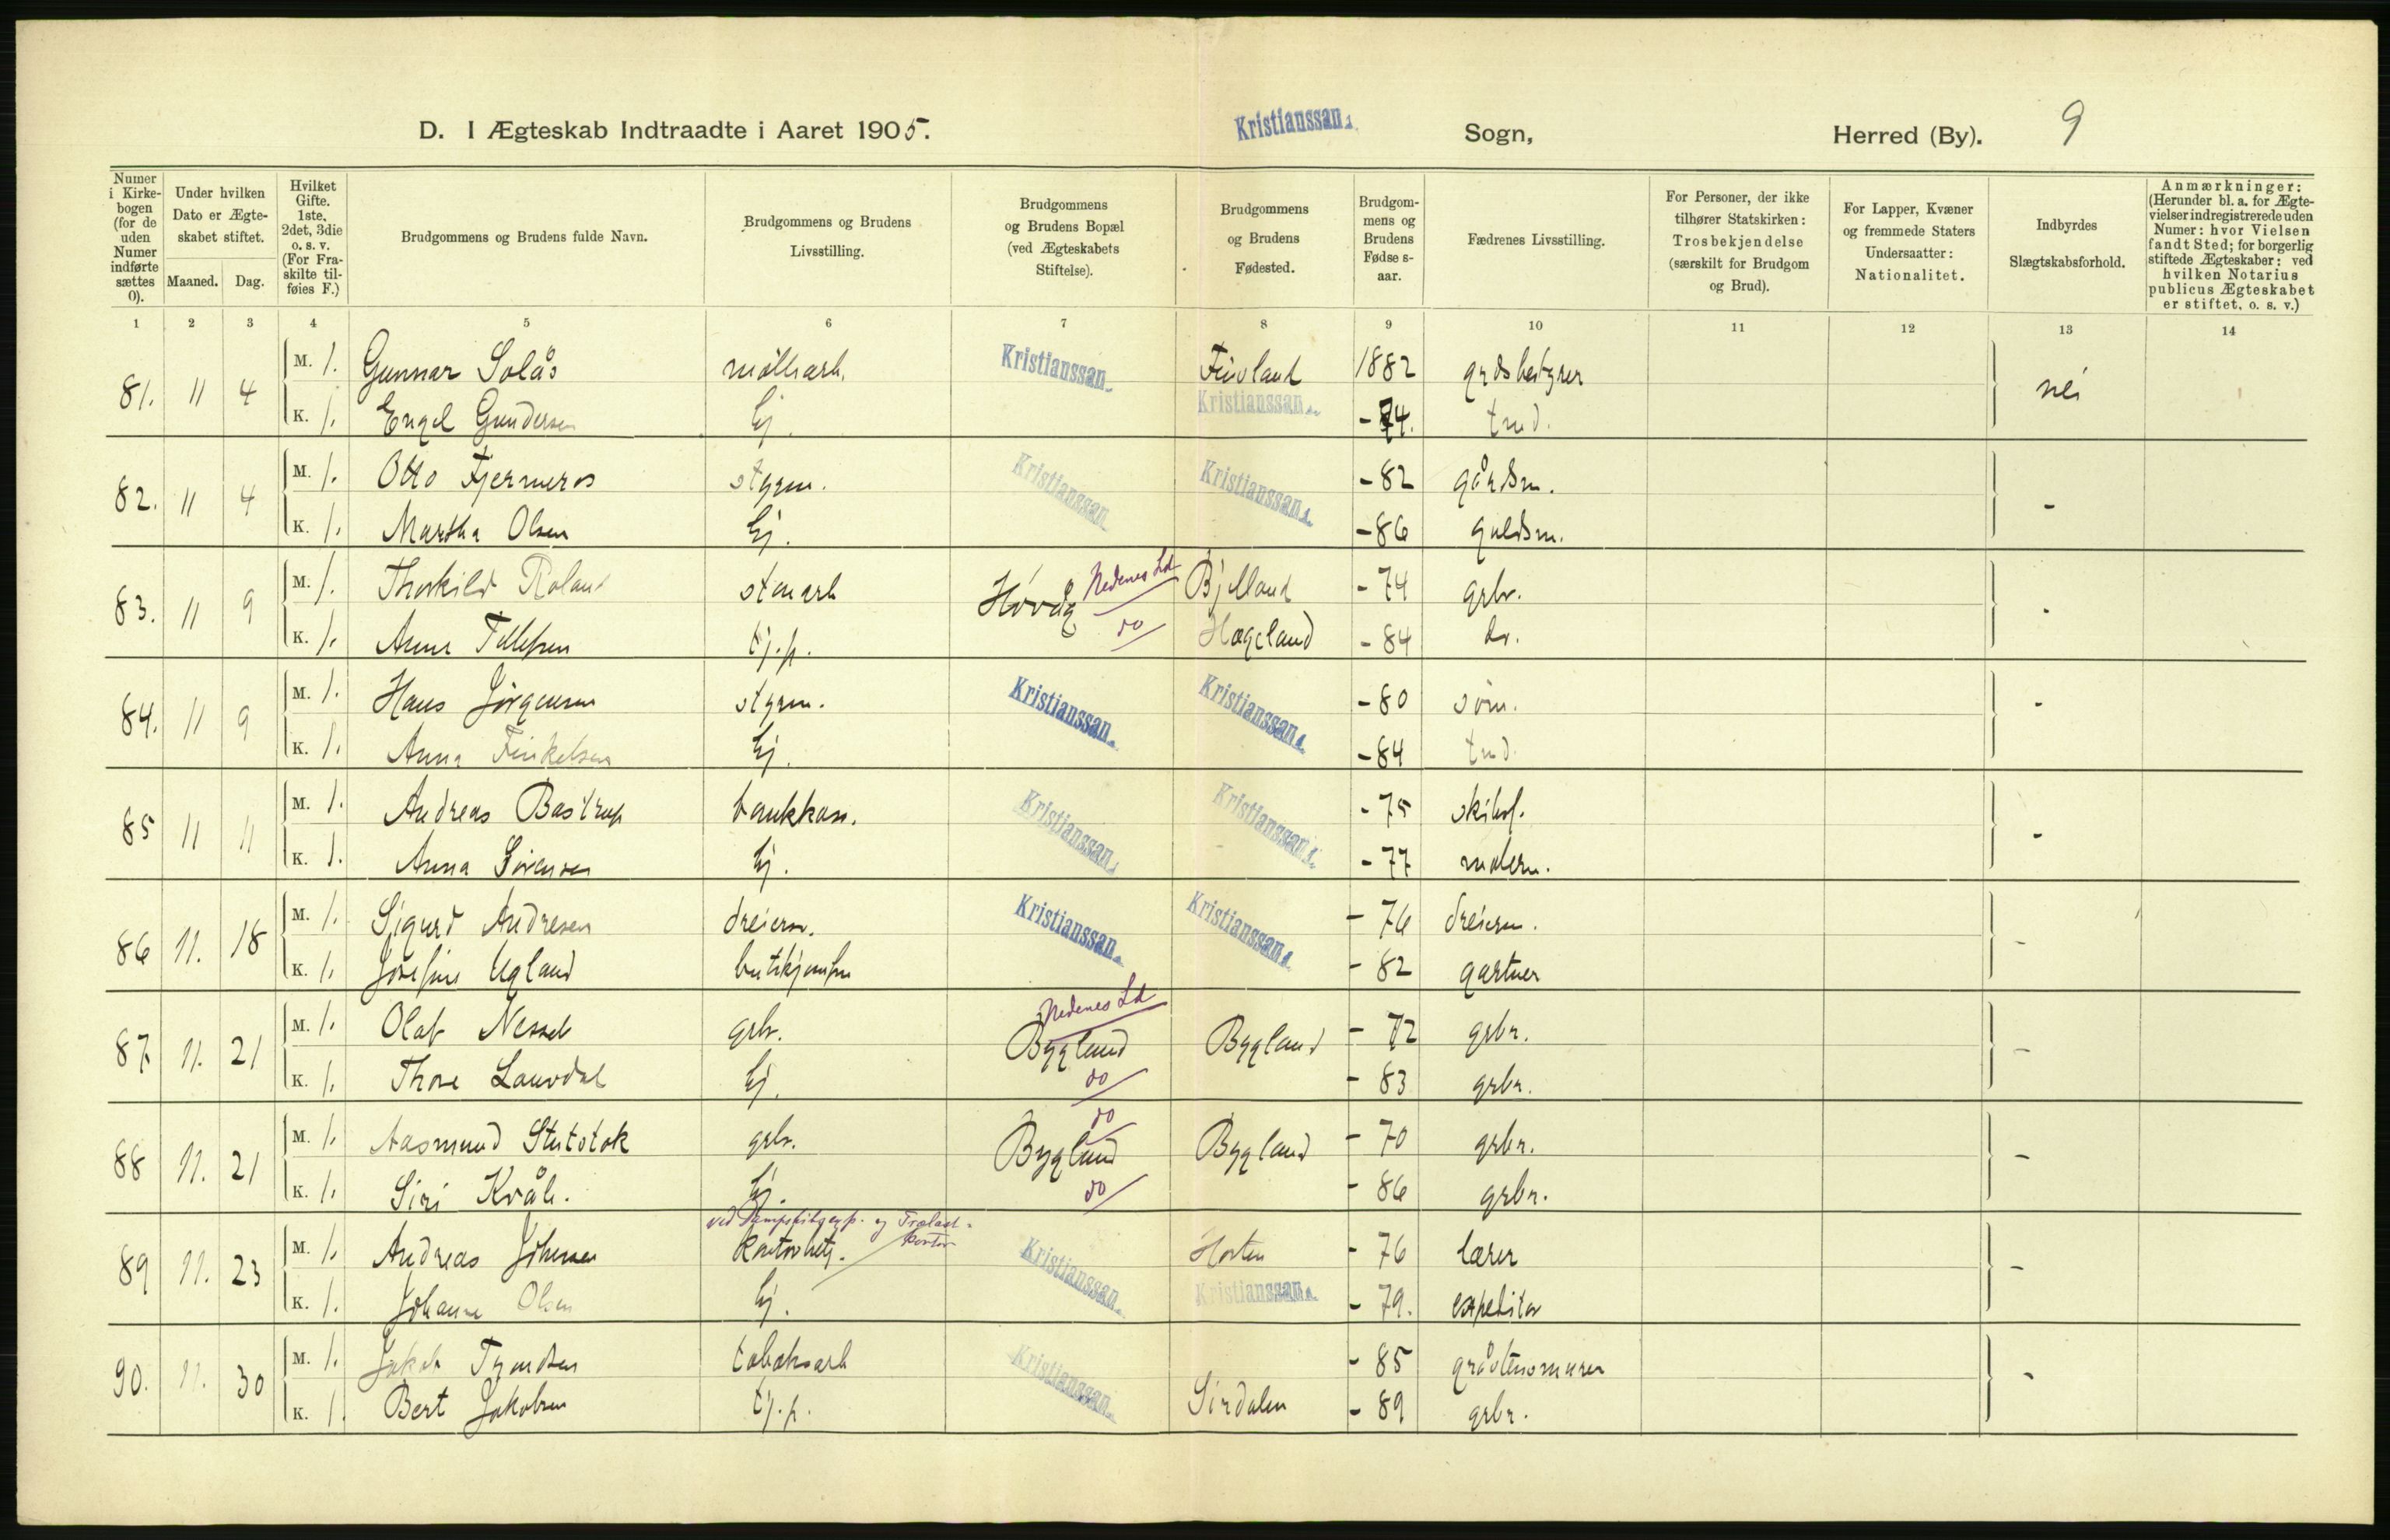 D. I Ægteskab Indtraadte i Aaret 1905. Kristianssan Sogn, Herred (By). 9
Numer i Kirkebogen (for de uden Numer indførte sættes 0).
Under hvilken Dato er Ægteskabet stiftet.
Maaned. Dag.
Hvilket Gifte. 1ste, 2det, 3die o. s. v. (For Fraskilte tilføies F.)
Brudgommens og Brudens fulde Navn.
Brudgommens og Brudens Livsstilling.
Brudgommens og Brudens Bopæl (ved Ægteskabets Stiftelse).
Brudgommens og Brudens Fødested.
Brudgommens og Brudens Fødselsaar.
Fædrenes Livsstilling.
For Personer, der ikke tilhører Statskirken: Trosbekjendelse (særskilt for Brudgom og Brud).
For Lapper, Kvæner og fremmede Staters Undersaatter: Nationalitet.
Indbyrdes Slægtskabsforhold.
Anmærkninger: (Herunder bl. a. for Ægtevielser indregistrerede uden Numer: hvor Vielsen fandt Sted; for borgerlig stiftede Ægteskaber: ved hvilken Notarius publicus Ægteskabet er stiftet, o. s. v.)
1 2 3 4 5 6 7 8 9 10 11 12 13 14
81. 11 4 M. 1. Gunnar Solås möllearb. Kristianssan Finland 1882 grdsbestyrer nei
K. 1. Engel Gundersen Ej. Kristianssan -74. tmd.
82. 11 4 M. 1. Otto Fjermeros styrm. Kristianssan Kristianssan -82 gårdsm. -
K. 1. Martha Olsen Ej. -86 guldsm.
83. 11 9 M. 1. Thorkild Roland stenarb Høvåg Nedenes Ld Bjelland -74 grbr. -
K. 1. Anne Tellefsen tj.p. do Hægeland -84 do.
84. 11 9 M. 1. Hans Jörgensen styrm. Kristianssan Kristianssan -80 söm. -
K. 1. Anna Finkelsen Ej. -84 tmd.
85 11 11 M. 1. Andreas Bastrup bankkass. Kristianssan Kristianssan -75 -
K. 1. Anna Sörensen Ej. -77 malerm.
86 11. 18 M. 1. Sigurd Andresen dreierm. Kristianssan Kristianssan -76 dreierm. -
K. 1. Josefine Ugland butikjomfru -82 gartner
87. 11. 21 M. 1. Olaf Nesseb grbr. Nedenes Ld Bygland Bygland -72 grbr. -
K. 1. Thore Lauvdal Ej. do -83 grbr.
88 11. 21 M. 1. Aasmund Stutstok grbr. do Bygland Bygland -70 grbr. -
K. 1. Siri Kvåle. Ej. do -86 grbr.
ved Dampskibsexp. og Trælast-
89 11. 23 M. 1. Andreas Johnsen kontorbetj. kontor Kristianssan Horten -76 lærer -
K. 1. Johanne Olsen Ej. Kristianssan -79. expeditör
90. 11. 30 M. 1. Jakob Tyndsen tobaksarb Kristianssan -85 gråstensmurer -
K. 1. Bert Jakobsen tj.p. Sirdalen -89 grbr.